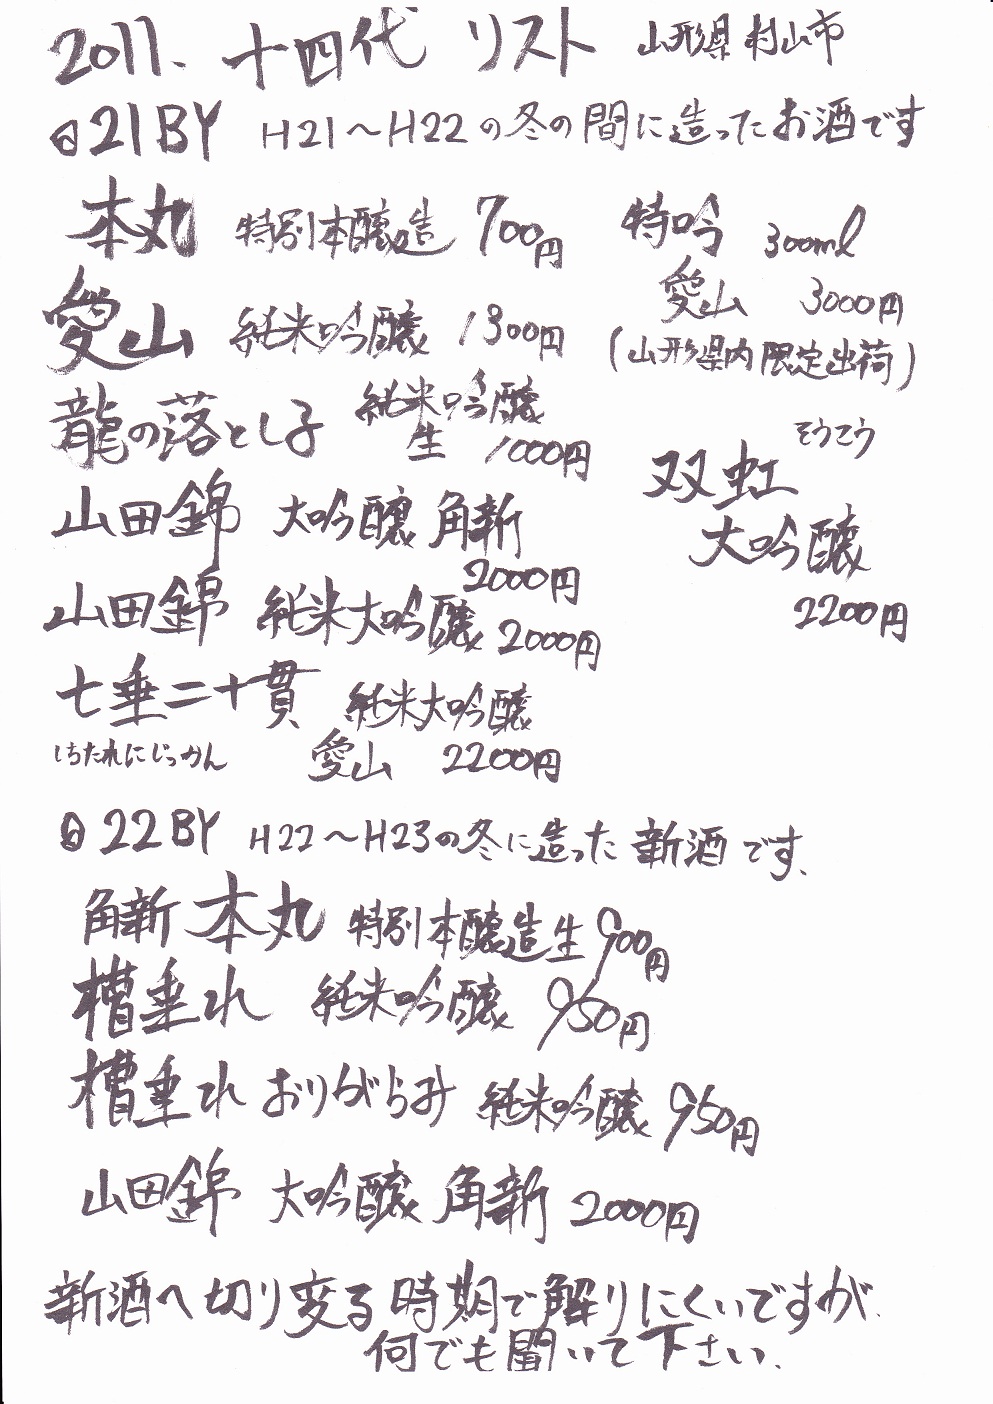 2011. 十四代 リスト 山形県村山市
21BY H21〜H22の冬の間に造ったお酒です
本丸 特別本醸造 700円
愛山 純米吟醸 1300円
龍の落とし子 純米吟醸
生 1000円
山田錦 大吟醸 角新
2000円
山田錦 純米大吟醸 2000円
七垂二十貫 純米大吟醸
しちたれにじっかん 愛山 2200円
特吟 300ml
愛山 3000円
(山形県内限定出荷)
そうこう
双虹
大吟醸
2200円
22BY H22〜H23の冬に造った新酒です、
角新 本丸 特別本醸造生 900円
槽垂れ 純米吟醸 950円
槽垂れ おりがらみ 純米吟醸 950円
山田錦 大吟醸 角新 2000円
新酒へ切り変る時期で解りにくいですが、
何でも聞いて下さい、